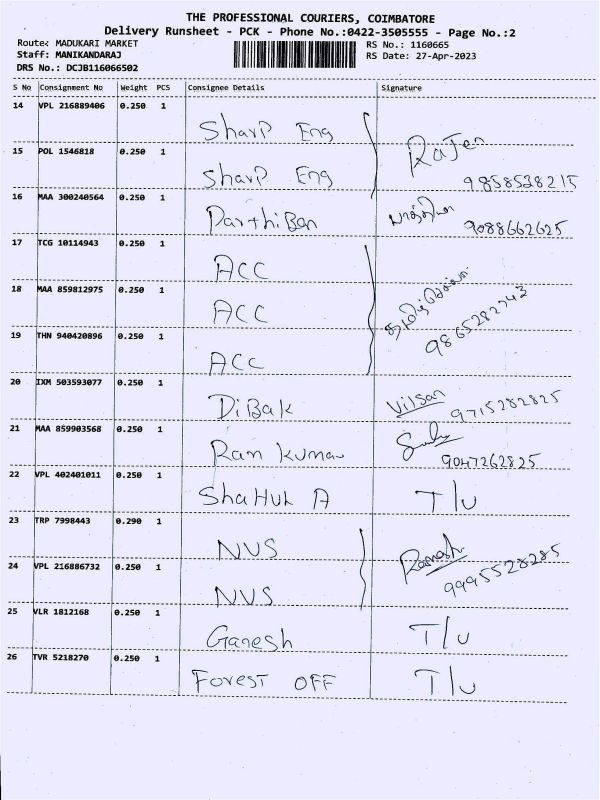 THE PROFESSIONAL COURIERS, COIMBATORE
Delivery Runsheet - PCK - Phone No.:0422-3505555 - Page No.:2
Route: MADUKARI MARKET RS No.: 1160665
Staff: MANIKANDARAJ RS Date: 27-Apr-2023
DRS No.: DCJB116066502
S No Consignment No Weight PCS Consignee Details Signature
14 VPL 216889406 0.250 1 Sharp Eng
Rajen
15 POL 1546818 0.250 1 Sharp Eng 9858528215
16 MAA 300240564 0.250 1 Parthiban 9088662625
17 TCG 10114943 0.250 1 ACC
18 MAA 859812975 0.250 1 ACC 9865282743
19 THN 940420896 0.250 1 ACC
20 IXM 503593077 0.250 1 DiBak Vilsan 9715282825
21 MAA 859903568 0.250 1 Ram Kumar 9047262825
22 VPL 402401011 0.250 1 ShaHul A T/U
23 TRP 7998443 0.290 1 NVS
Ramesh
24 VPL 216886732 0.250 1 NVS 9995528285
25 VLR 1812168 0.250 1 Ganesh T/U
26 TVR 5218270 0.250 1 Forest OFF T/U